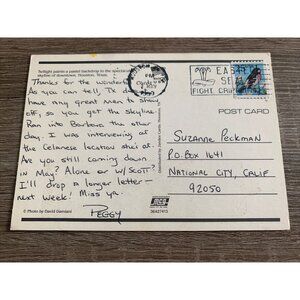 Twilight paints a pastel backdrop to the spectacular
skyline of downtown, Houston, Texas.
Thanks for the wonderful
As you can tell, TX
have any great men to show
off, so you get the skyline.
Ran into Barbara the other
day. I was interviewing at
the Celanese location she's at.
Are you still coming down
in May? Alone or w/Scott?
I'll drop a longer letter—
next week! Miss ya.
Peggy
© Photo by David Damiani
EASTER
SEAL
FIGHT
POST CARD
Suzanne Peckman
P.O. Box 1641
National City, Calif
92050